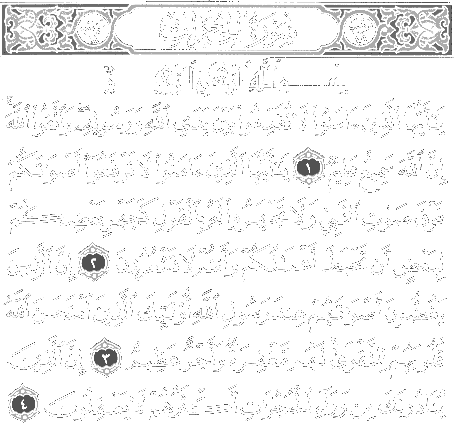 سورة الحجرات
بسم الله الرحمن الرحيم
يَا أَيُّهَا الَّذِينَ آمَنُوا لَا تُقَدِّمُوا بَيْنَ يَدَيِ اللَّهِ وَرَسُولِهِ وَاتَّقُوا اللَّهَ
إِنَّ اللَّهَ سَمِيعٌ عَلِيمٌ ١ يَا أَيُّهَا الَّذِينَ آمَنُوا لَا تَرْفَعُوا أَصْوَاتَكُمْ
فَوْقَ صَوْتِ النَّبِيِّ وَلَا تَجْهَرُوا لَهُ بِالْقَوْلِ كَجَهْرِ بَعْضِكُمْ
لِبَعْضٍ أَن تَحْبَطَ أَعْمَالُكُمْ وَأَنتُمْ لَا تَشْعُرُونَ ٢ إِنَّ الَّذِينَ
يَغُضُّونَ أَصْوَاتَهُمْ عِندَ رَسُولِ اللَّهِ أُولَئِكَ الَّذِينَ امْتَحَنَ اللَّهُ
قُلُوبَهُمْ لِلتَّقْوَى لَهُم مَّغْفِرَةٌ وَأَجْرٌ عَظِيمٌ ٣ إِنَّ الَّذِينَ
يُنَادُونَكَ مِن وَرَاءِ الْحُجُرَاتِ أَكْثَرُهُمْ لَا يَعْقِلُونَ ٤